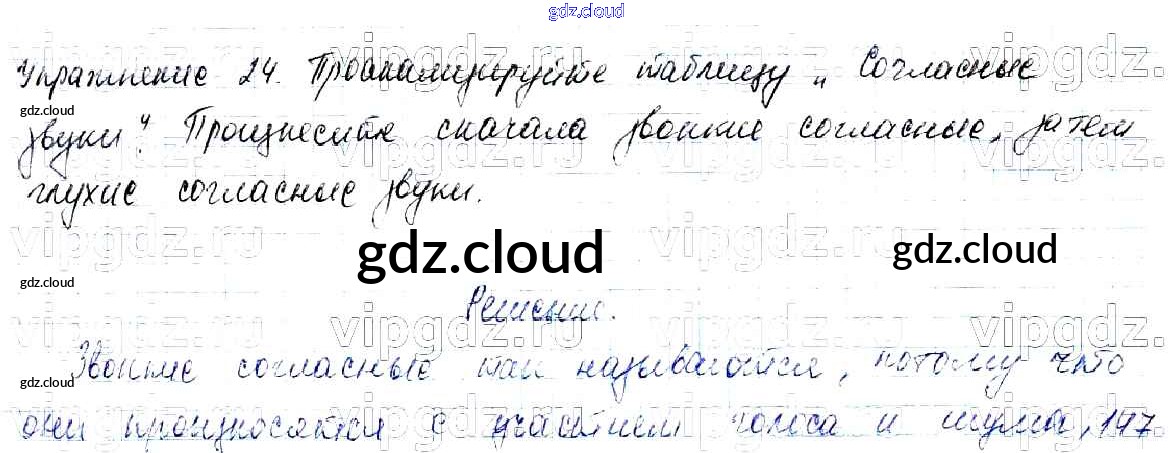 gdz.cloud
Упражнение 24. Проанализируйте таблицу „Согласные
gdz.cloud
звуки". Произнесите сначала звонкие согласные, затем
глухие согласные звуки.
gdz.cloud gdz.cloud
gdz.cloud
Решение.
Звонкие согласные так называются, потому что
gdz.cloud
они произносятся с участием голоса и шума,
vipgdz.ru vipgdz.ru vipgdz.ru vipgdz.ru